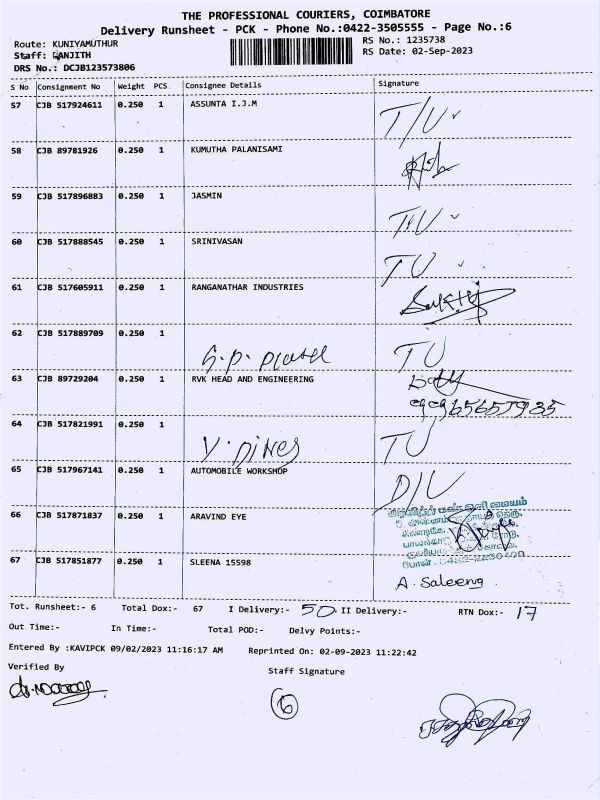 THE PROFESSIONAL COURIERS, COIMBATORE
Delivery Runsheet - PCK - Phone No.:0422-3505555 - Page No.:6
Route: KUNIYAMUTHUR RS No.: 1235738
Staff: GANJITH RS Date: 02-Sep-2023
DRS No.: DCJB123573806
S No Consignment No Weight PCS Consignee Details Signature
57 CJB 517924611 0.250 1 ASSUNTA I.J.M T/U
58 CJB 89781926 0.250 1 KUMUTHA PALANISAMI
59 CJB 517896883 0.250 1 JASMIN
60 CJB 517888545 0.250 1 SRINIVASAN TU
61 CJB 517605911 0.250 1 RANGANATHAR INDUSTRIES
62 CJB 517889709 0.250 1
TU
63 CJB 89729204 0.250 1 RVK HEAD AND ENGINEERING
64 CJB 517821991 0.250 1
TU
65 CJB 517967141 0.250 1 AUTOMOBILE WORKSHOP D/U
66 CJB 517871837 0.250 1 ARAVIND EYE
67 CJB 517851877 0.250 1 SLEENA 15598
A. Saleena
Tot. Runsheet:- 6 Total Dox:- 67 I Delivery:- 50 II Delivery:- RTN Dox:- 17
Out Time:- In Time:- Total POD:- Delvy Points:-
Entered By :KAVIPCK 09/02/2023 11:16:17 AM Reprinted On: 02-09-2023 11:22:42
Verified By Staff Signature
6